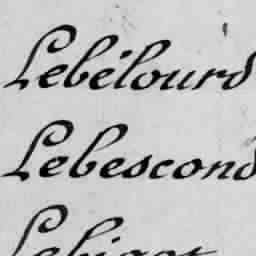 Lebélourd
Lebescond